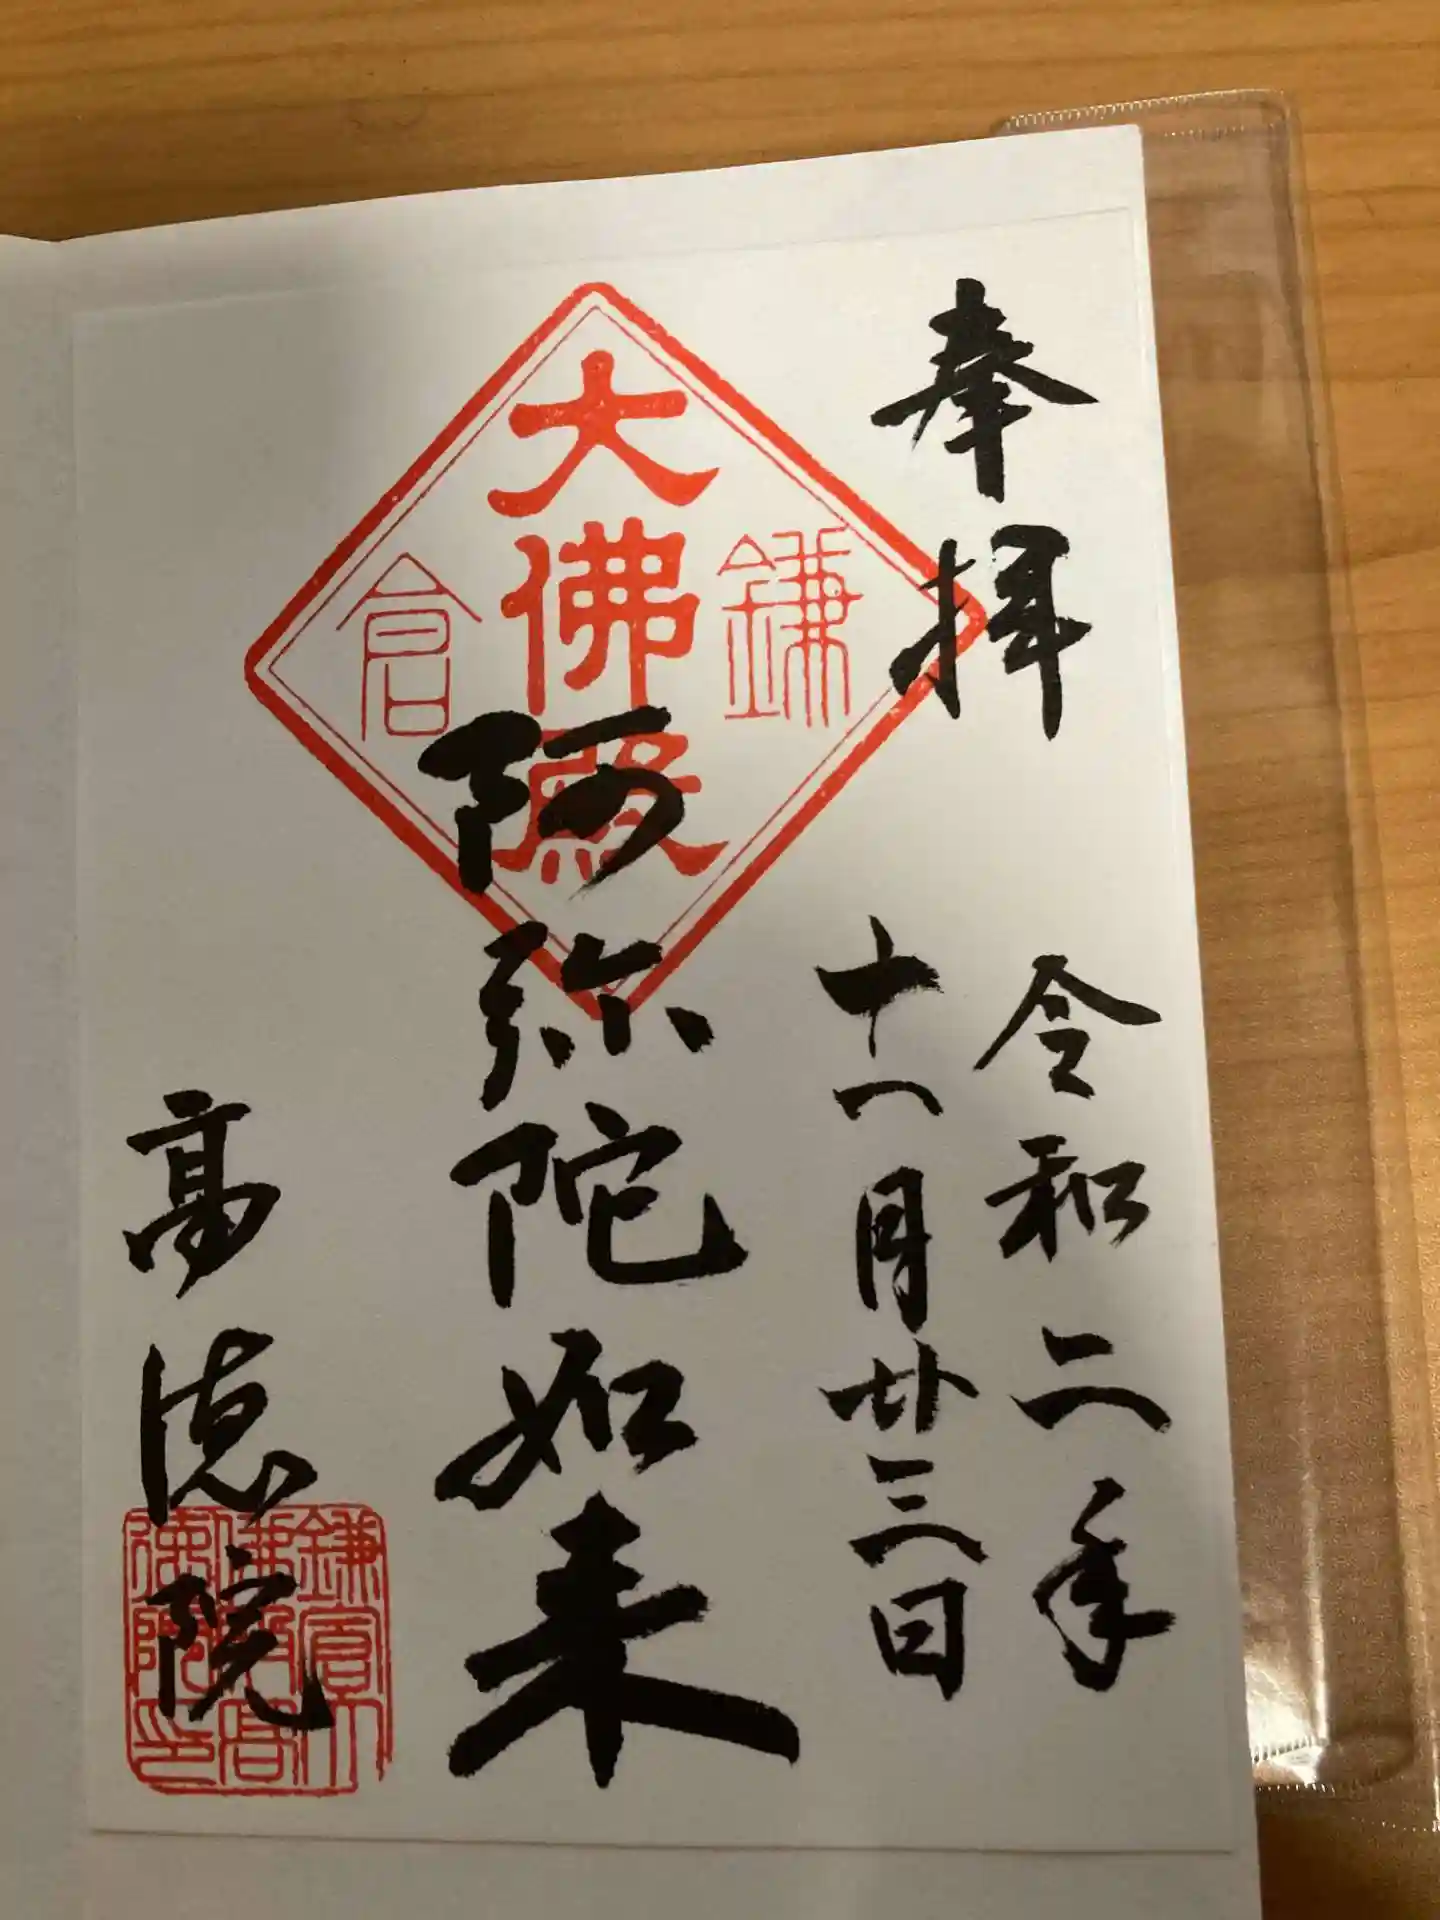 奉拝
令和二年
十一月廿三日
鎌倉
大佛殿
阿弥陀如来
高徳院
鎌倉大
佛殿高
德院印